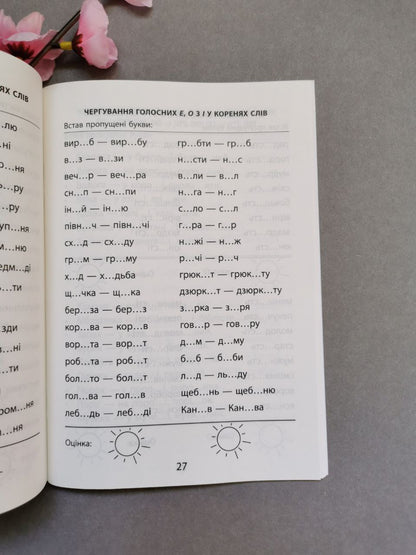 ЯХ СЛІВ
...лю
...ня
...ру
...ру
...ню
едм...ді
...ти
зди
...ні
...в
ром...ня
...ня
ЧЕРГУВАННЯ ГОЛОСНИХ Е, О З І У КОРЕНЯХ СЛІВ
Встав пропущені букви:
вир...б — вир...бу гр...бти — гр...б
в...з — в...зи н...сти — н...с
веч...р — веч...ра в...ли — в...л
сн...п — сн...пи н...га — н...г
ін...й — ін...ю с...ло — с...л
півн...ч — півн...чі г...ра — г...р
сх...д — сх...ду н...жі — н...ж
гр...м — гр...му р...чі — р...ч
х...д — х...дьба грюк...т — грюк...ту
щ...чка — щ...ка дзюрк...т — дзюрк...ту
бер...за — бер...з з...рка — з...ря
кор...ва — кор...в гов...р — гов...ру
вор...та — вор...т д...м — д...му
роб...та — роб...т б...б — б...би
бол...то — бол...т л...д — ль...ду
гол...ва — гол...в щеб...нь — щеб...ню
леб...дь — леб...ді Кан...в — Кан...ва
Оцінка:
27